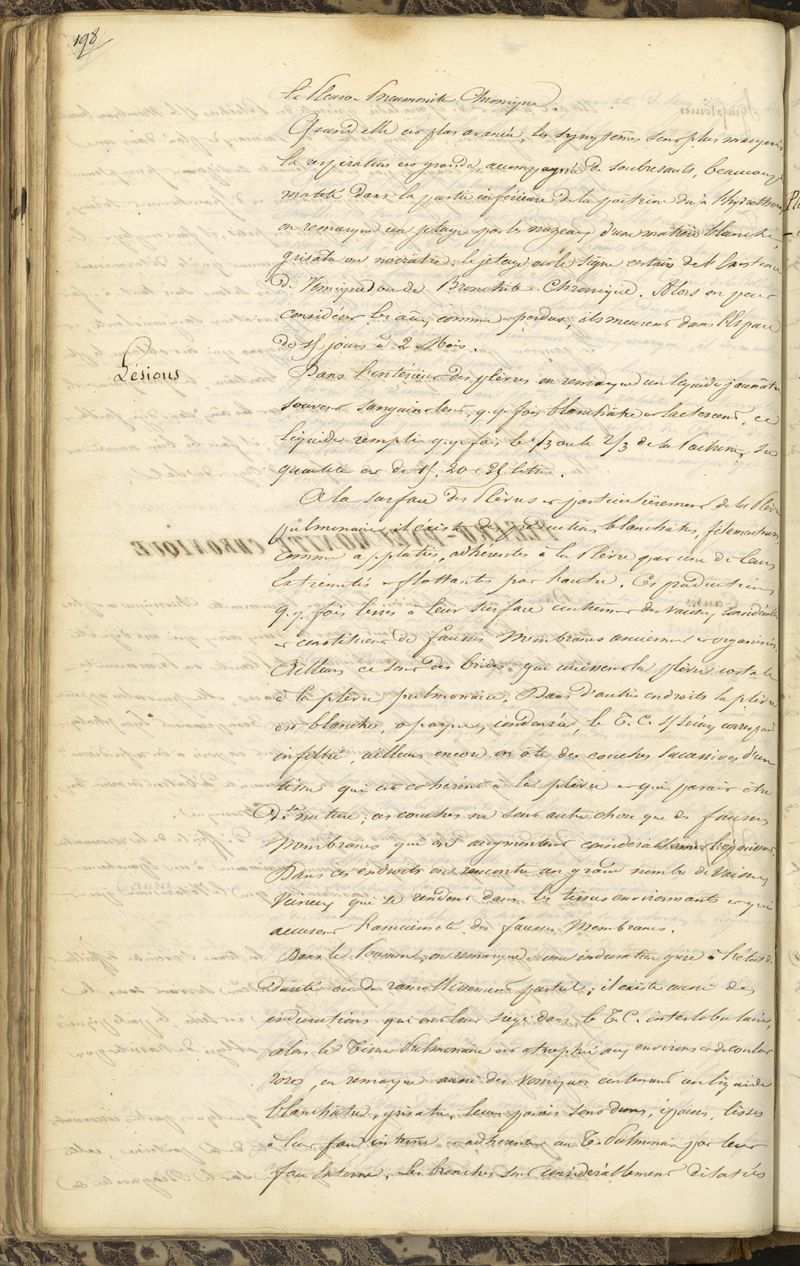 198
la Pleuro-Pneumonite Chronique.
Quand elle est plus avancée, les symptômes sont plus marqués
la respiration est grande, accompagnée de soubresauts, beaucoup
matité dans la partie inférieure de la poitrine dû à l'hydrothorax
on remarque un jetage par les nazeaux d'une matière blanche,
grisâtre ou noirâtre; le jetage est le signe certain de l'existence
de Vomiques ou de Bronchite Chronique. Alors on peut
considérer les aux comme perdus, ils meurent dans l'Espace
de 15 jours à 2 Mois.
Lésions
Dans l'intérieur des plèvres on remarque un liquide jaunâtre
souvent sanguinolent, q.q. fois blanchâtre et lactescent, ce
liquide remplit q.q. fois le 1/3 ou le 2/3 de la Poitrine, Sa
quantité est de 15, 20 à 25 litres.
A la surface des Plèvres et particulièrement de la Plèvre
pulmonaire il existe des productions blanchâtres, filamenteuses
comme applaties, adhérentes à la Plèvre par une de leurs
Extrémités et flottants par l'autre. Ces productions
q.q. fois lisses à leur surface contiennent des vaisseaux considérables
et constituent de fausses Membranes anciennes et organisées,
Ailleurs ce sont des brides qui unissent la plèvre costale
à la plèvre pulmonaire. Dans d'autres endroits la plèvre
est blanche, opaque, condensée, le T. C. S/séreux correspond
infiltré, ailleurs encore on ôte des couches successives d'un
tissu qui est cohérent à la plèvre et qui parait être
de sa nature, ces couches ne sont autre chose que des fausses
Membranes qui ont augmenté considérablement l'épaisseur.
Dans ces endroits on rencontre un grand nombre de Vaisseaux
Veineux qui se rendent dans les tissus environnants et qui
accusent l'ancienneté des fausses Membranes.
Dans le Poumon, on remarque une induration grise à l'état de
Dureté ou de ramollissement partiel; il existe aussi des
indurations qui ont leur siège dans le T. C. interlobulaire,
alors le Tissu Pulmonaire est atrophié aux environs et de couleur
rose, on remarque aussi des vomiques contenant un liquide
blanchâtre, grisâtre, leurs parois sont dures, épaisses, lisses
à leur face interne et adhérentes au T. Pulmonaire par leur
face Externe. Les bronches sont considérablement dilatées